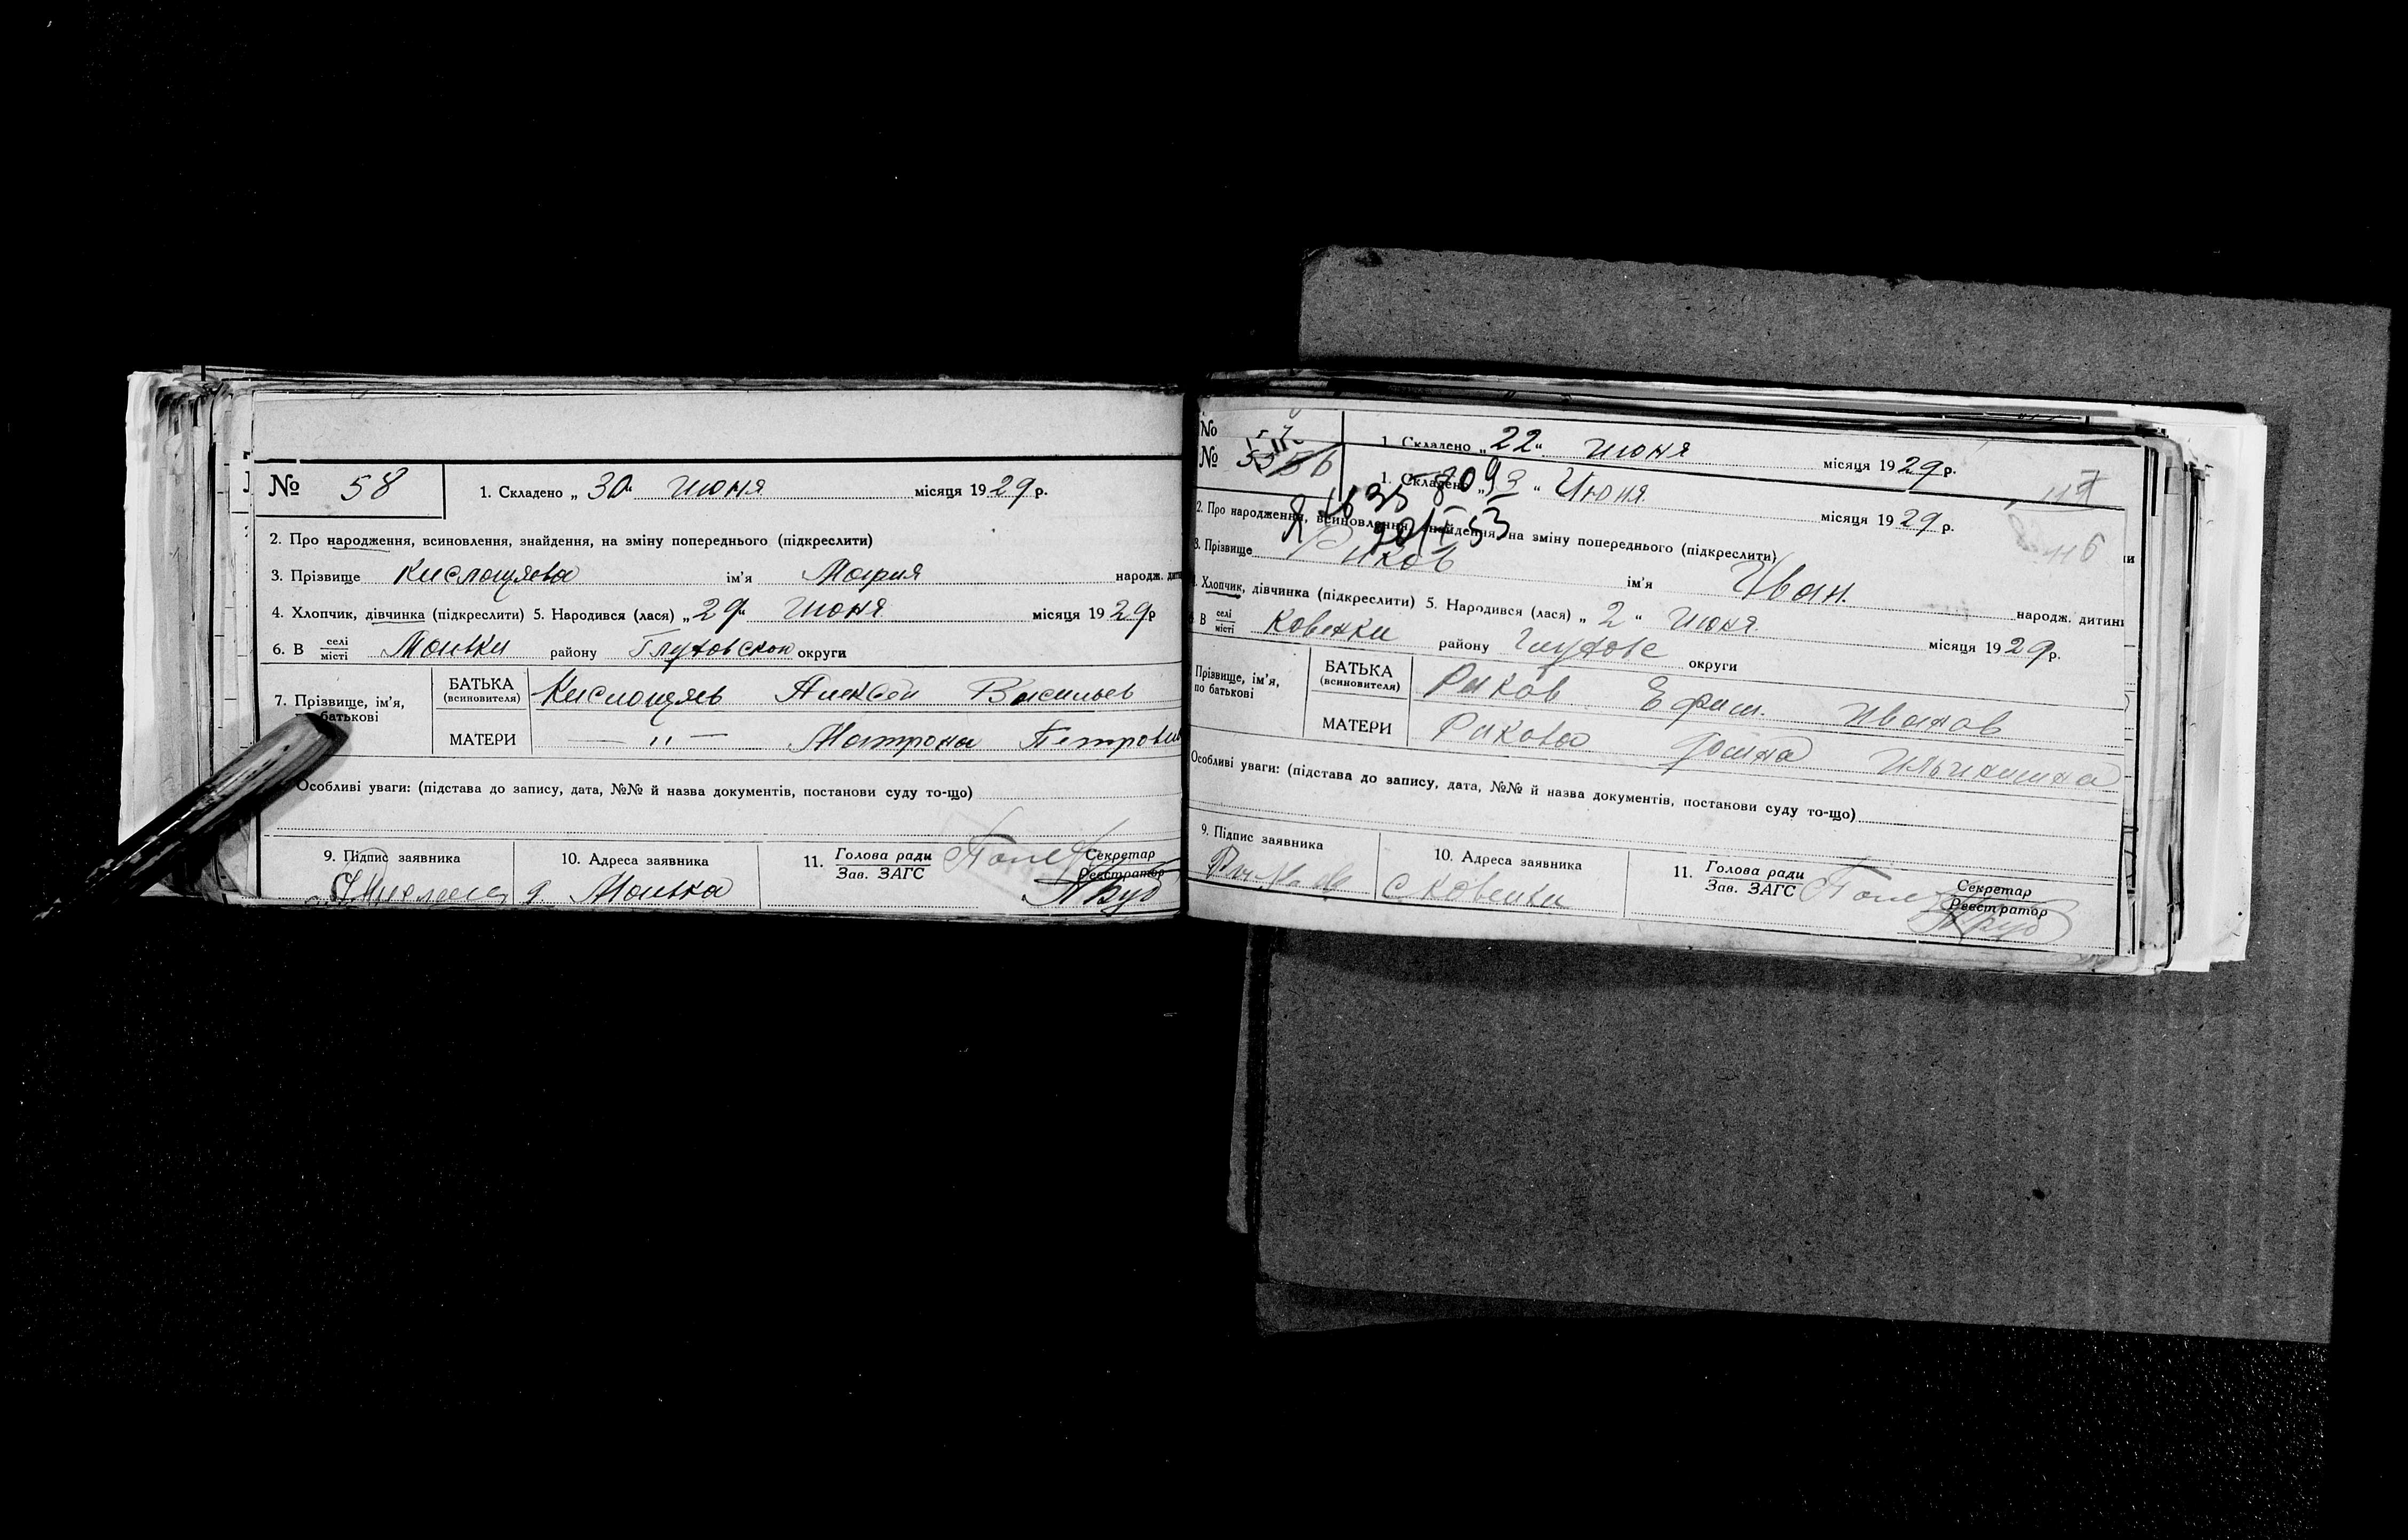 № 58 1. Складено „ 30 “ июня місяця 1929 р.
2. Про народження, всиновлення, знайдення, на зміну попереднього (підкреслити)
3. Прізвище Кислощяева ім'я Мария народж. дити
4. Хлопчик, дівчинка (підкреслити) 5. Народився (лася) „ 29 “ июня місяця 1929 р
6. В селі місті району Глуховской округи
7. Прізвище, ім'я, батькові
БАТЬКА (всиновителя) Кислощяев Алексей Васильев
МАТЕРИ — " — Матрона Петровн
Особливі уваги: (підстава до запису, дата, №№ й назва документів, постанови суду то-що)
9. Підпис заявника 10. Адреса заявника 11. Голова ради Зав. ЗАГС Секретар Реєстратор
№ 1. Складено „ 22 “ июня місяця 1929 р.
№ 56 1. Складено „ “ Июня місяця 1929 р.
117
116
2. Про народження, всиновлення, знайдення, на зміну попереднього (підкреслити)
3. Прізвище Риков ім'я Иван. народж. дитини
4. Хлопчик, дівчинка (підкреслити) 5. Народився (лася) „ 2 “ июня місяця 1929 р.
6. В селі місті Ковенки району Глухове округи
Прізвище, ім'я, по батькові
БАТЬКА (всиновителя) Риков Ефим Иванов
МАТЕРИ Рикова
Особливі уваги: (підстава до запису, дата, №№ й назва документів, постанови суду то-що)
9. Підпис заявника 10. Адреса заявника 11. Голова ради Зав. ЗАГС Секретар Реєстратор
с Ковенки